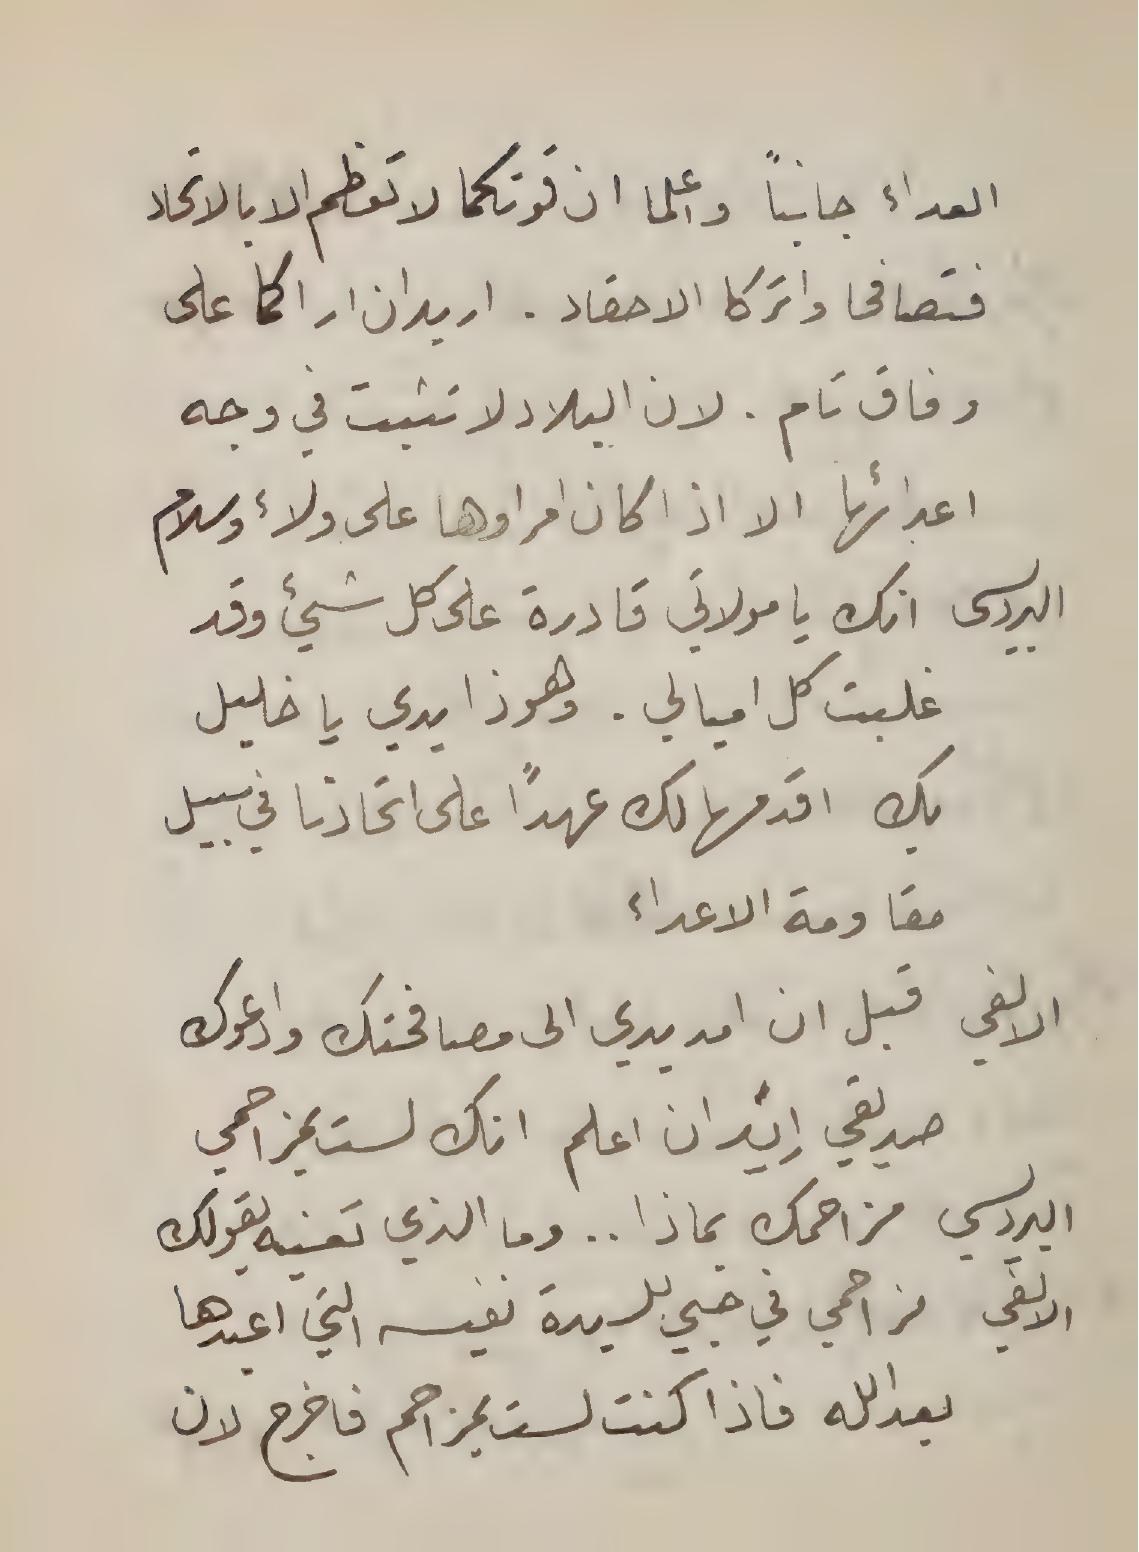 العداء جانباً واعلما ان قوتكما لا تعظم الا بالاتحاد
فتصافحا واتركا الاحقاد . اريد ان اراكما على
وفاق تام . لان البلاد لا تثبت في وجه
اعدائها الا اذا كان امراوها على ولاء وسلام
البرديسى انك يا مولاتي قادرة على كل شيئ وقد
غلبت كل اميالي . وهوذا يدي يا خليل
بك اقدمها لك عهداً على اتحادنا في سبيل
مقاومة الاعداء
الالفي قبل ان امد يدي الى مصافحتك وادعوك
صديقي اريد ان اعلم انك لست بمزاحمي
البرديسي مزاحمك بماذا .. وما الذي تعنيه بقولك
الالفي مزاحمي في حبي للسيدة نفيسه التي اعبدها
بعد الله فاذا كنت لست بمزاحم فاخرج لان